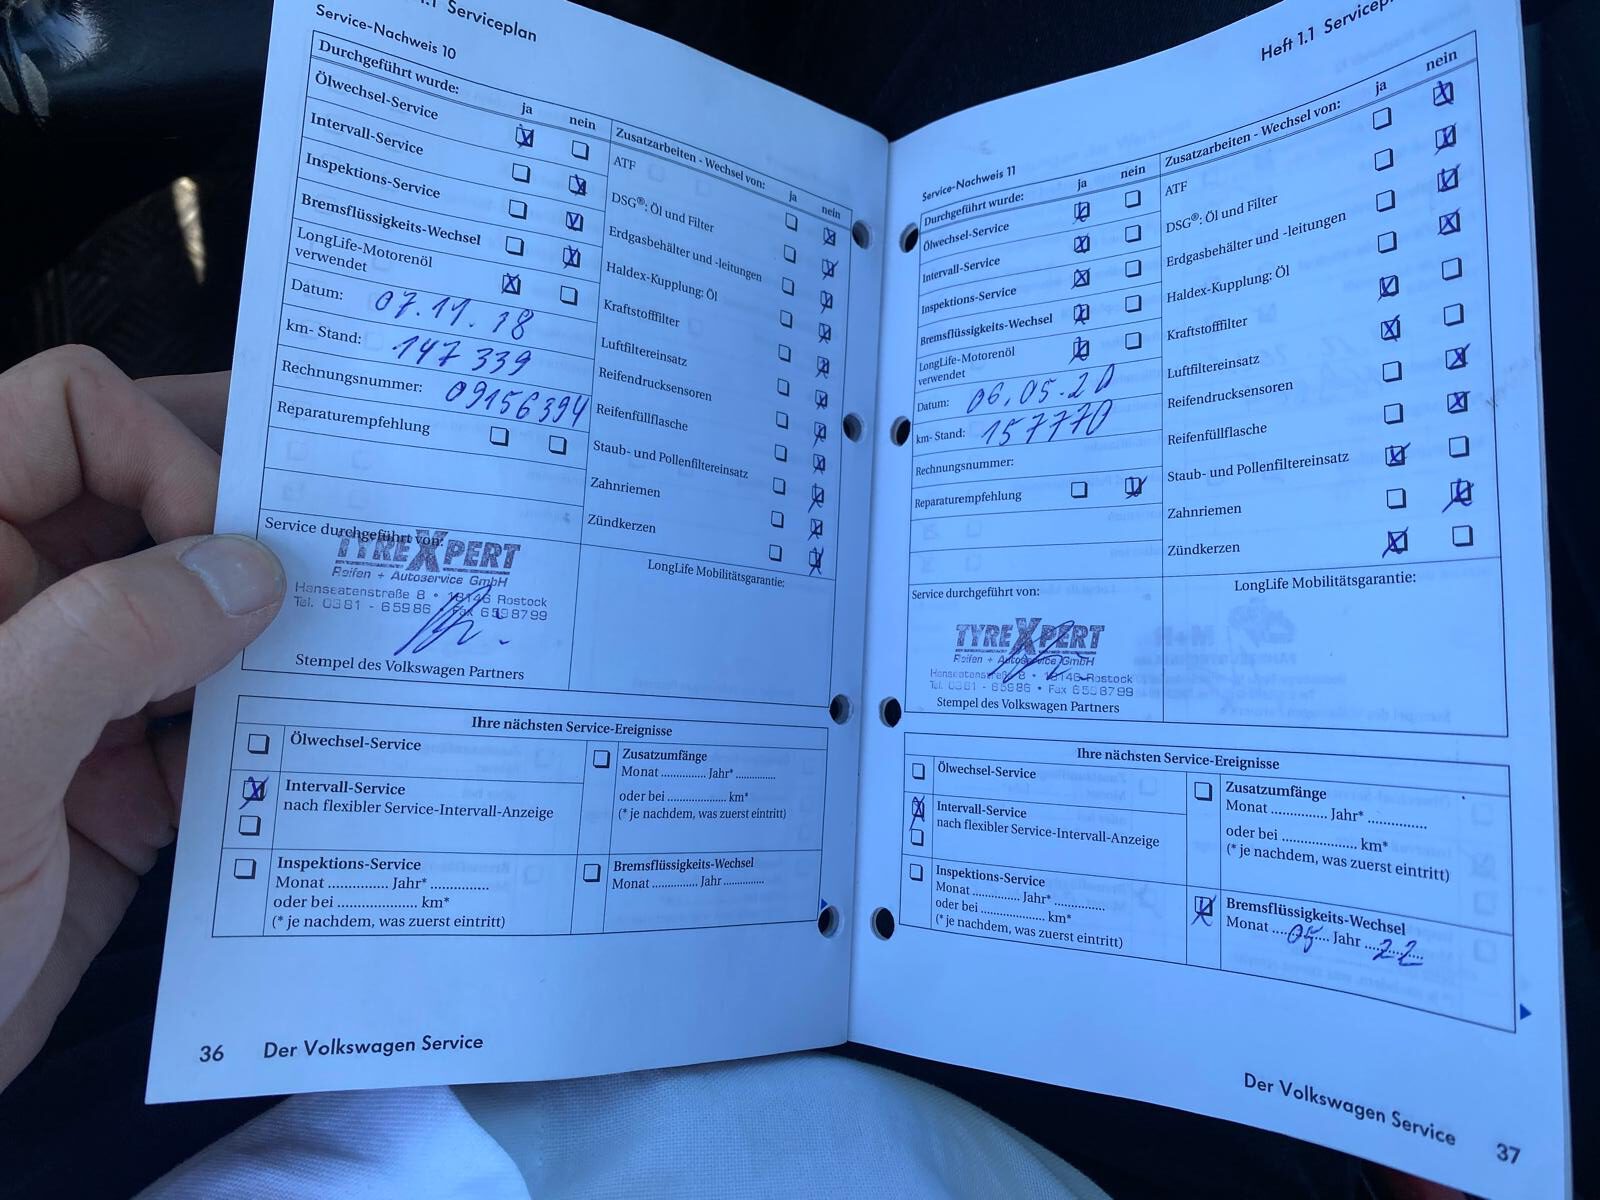 1.1 Serviceplan
Service-Nachweis 10
Durchgeführt wurde:
ja nein
Ölwechsel-Service
Intervall-Service
Inspektions-Service
Bremsflüssigkeits-Wechsel
LongLife-Motorenöl
verwendet
Datum: 07.11.18
km- Stand: 147 339
Rechnungsnummer: 09156394
Reparaturempfehlung
Zusatzarbeiten - Wechsel von: ja nein
ATF
DSG®: Öl und Filter
Erdgasbehälter und -leitungen
Haldex-Kupplung: Öl
Kraftstofffilter
Luftfiltereinsatz
Reifendrucksensoren
Reifenfüllflasche
Staub- und Pollenfiltereinsatz
Zahnriemen
Zündkerzen
Service durchgeführt von:
TYREXPERT
Reifen + Autoservice GmbH
Hanseatenstraße 8 • 18146 Rostock
Tel. 0381 - 65986 • Fax 6598799
Stempel des Volkswagen Partners
LongLife Mobilitätsgarantie:
Ihre nächsten Service-Ereignisse
Ölwechsel-Service
Intervall-Service
nach flexibler Service-Intervall-Anzeige
Inspektions-Service
Monat .............. Jahr* ..............
oder bei ................... km*
(* je nachdem, was zuerst eintritt)
Zusatzumfänge
Monat .............. Jahr* ............
oder bei .................... km*
(* je nachdem, was zuerst eintritt)
Bremsflüssigkeits-Wechsel
Monat ............ Jahr ............
36 Der Volkswagen Service
Heft 1.1 Servicep
Service-Nachweis 11
Durchgeführt wurde: ja nein
Ölwechsel-Service
Intervall-Service
Inspektions-Service
Bremsflüssigkeits-Wechsel
LongLife-Motorenöl
verwendet
Datum: 06.05.20
km- Stand: 157770
Rechnungsnummer:
Reparaturempfehlung
Zusatzarbeiten - Wechsel von: ja nein
ATF
DSG®: Öl und Filter
Erdgasbehälter und -leitungen
Haldex-Kupplung: Öl
Kraftstofffilter
Luftfiltereinsatz
Reifendrucksensoren
Reifenfüllflasche
Staub- und Pollenfiltereinsatz
Zahnriemen
Zündkerzen
Service durchgeführt von:
TYREXPERT
Reifen + Autoservice GmbH
Hanseatenstraße 8 • 18146 Rostock
Tel. 0381 - 65986 • Fax 6598799
Stempel des Volkswagen Partners
LongLife Mobilitätsgarantie:
Ihre nächsten Service-Ereignisse
Ölwechsel-Service
Intervall-Service
nach flexibler Service-Intervall-Anzeige
Inspektions-Service
Monat ......... Jahr* ............
oder bei ................ km*
(* je nachdem, was zuerst eintritt)
Zusatzumfänge
Monat .............. Jahr* ..............
oder bei .................... km*
(* je nachdem, was zuerst eintritt)
Bremsflüssigkeits-Wechsel
Monat 05 Jahr 22
Der Volkswagen Service 37